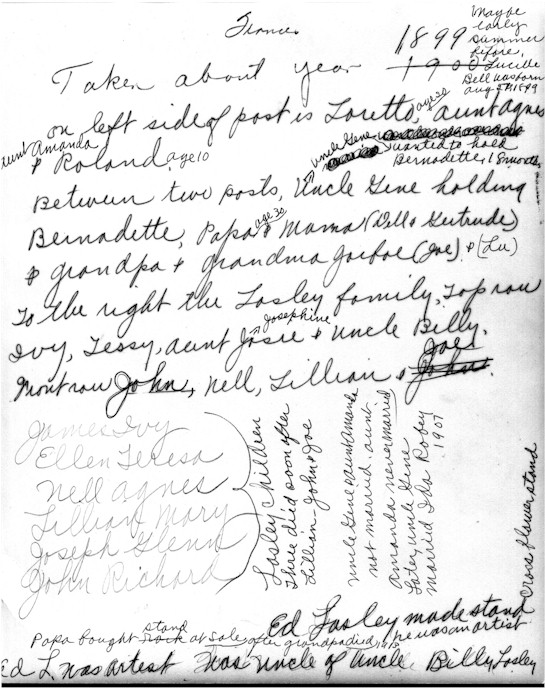 Frances
Maybe
early
summer
before
Lucille
Bell was born
aug 5th 1899
Taken about year 1899
1900
on left side of post is Loretto, age 20 aunt Agnes
aunt Amanda
& Roland. age 10
uncle Gene
wanted to hold
Bernadette, 8 months
Between two posts, Uncle Gene holding
Bernadette, Papa age 30 & Mama (Will & Gertrude)
& grandpa & grandma (Joe) & (Lu)
To the right the Losley family. Top row
Ivy, Tessy, aunt Josie Josephine & Uncle Billy.
Front row John, Nell, Lillian & Joe
John.
James Ivy
Ellen Teresa
Nell Agnes
Lillian Mary
Joseph Glenn
John Richard
Losley children
Three died soon after
Lillian John & Joe
uncle Gene & aunt Amanda
not married. aunt
Amanda never married
Later uncle Gene
married Ida Robey
1907
Cross flower stand
Ed Losley made stand
Papa bought stand at sale after grandpa died, he was an artist
Ed L. was artest Was uncle of Uncle Billy Losley